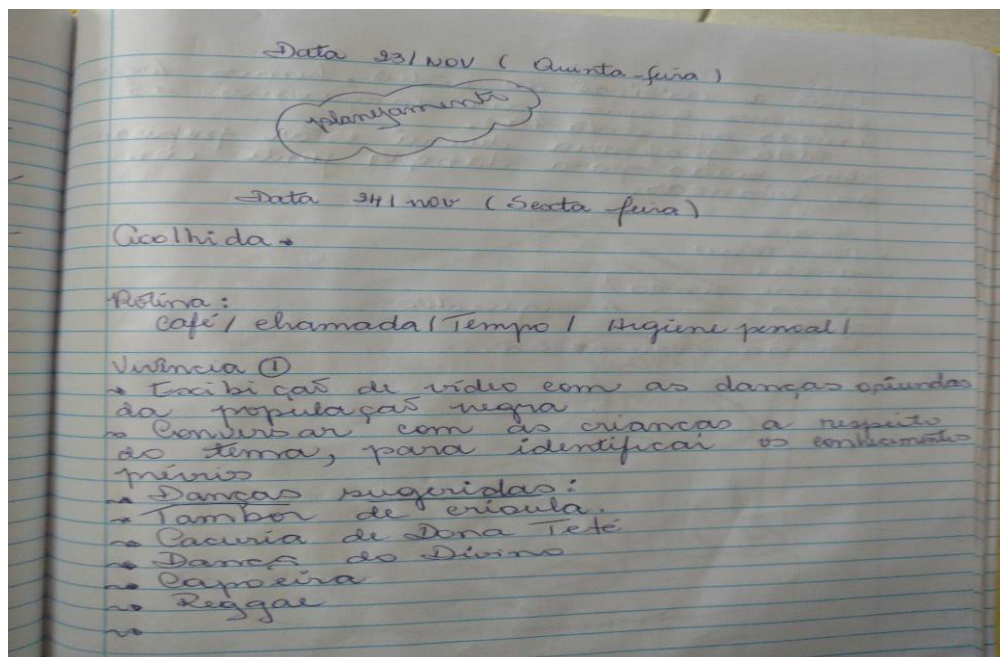 Data 23/NOV (Quinta-feira)
planejamento
Data 24/nov (Sexta feira)
Acolhida →
Rotina:
café / chamada / Tempo / Higiene pessoal /
Vivência ①
→ Exibição de vídeo com as danças oriundas
da população negra
→ Conversar com as crianças a respeito
do tema, para identificar os conhecimentos
prévios
→ Danças sugeridas:
→ Tambor de crioula.
→ Cacuria de Dona Teté
→ Dança do Divino
→ Capoeira
→ Reggae
→